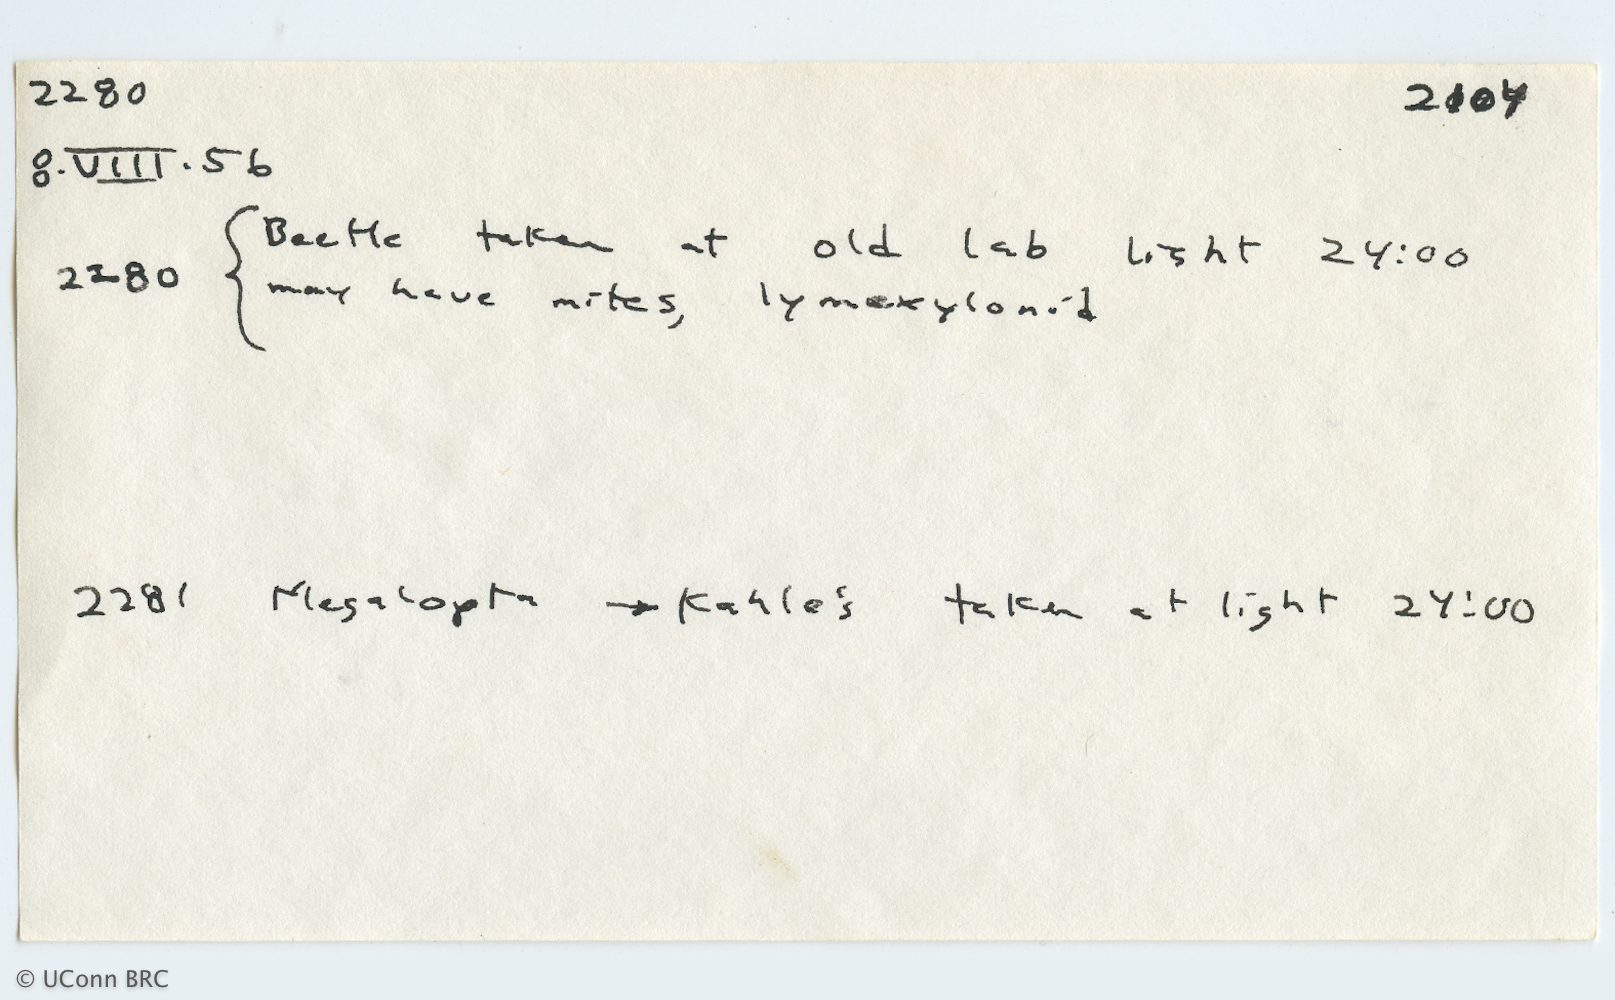 2280 2104
8.VIII.56
2280 { Beetle taken at old lab light 24:00
may have mites, lymexylonid
2281 Megalopta → Kahle's taken at light 24:00
© UConn BRC